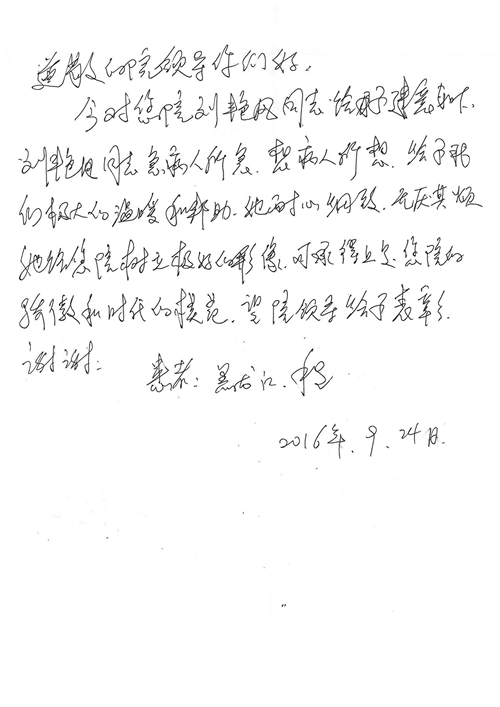 尊敬的院领导你们好:
今对您院刘艳凤同志给予建意如下.
刘艳凤同志急病人所急.想病人所想.给予我
们极大的温暖和帮助.她耐心细致.无厌其烦
她给您院树立极好的形像.可承得上是您院的
骄傲和时代的模范.望院领导给予表彰.
谢谢:
患者:黑龙江.
2016年.9.24日.